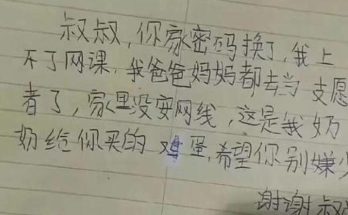 叔叔,你家密码换了,我上
不了网课,我爸爸妈妈都去当支愿
者了,家里没安网线,这是我奶
奶给你买的鸡蛋,希望你别嫌少
谢谢叔叔